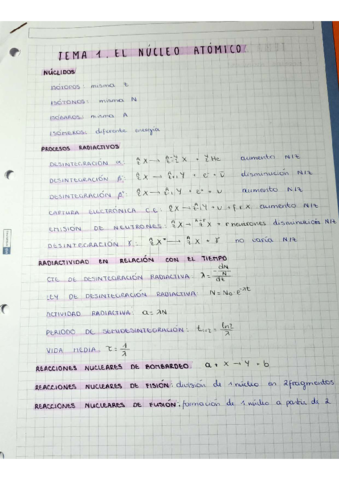 TEMA 1. EL NÚCLEO ATÓMICO
NÚCLIDOS
ISÓTOPOS: misma Z
ISÓTONOS: misma N
ISÓBAROS: misma A
ISÓMEROS: diferente energía
PROCESOS RADIACTIVOS
DESINTEGRACIÓN α: X → X + He aumento N/Z
DESINTEGRACIÓN β: X → Y + e + disminución N/Z
DESINTEGRACIÓN β: X → Y + e + υ aumento N/Z
CAPTURA ELECTRÓNICA C.E.: X → Y + υ + aumento N/Z
EMISIÓN DE NEUTRONES: X → X + neutrones disminución N/Z
DESINTEGRACIÓN γ: X* → X + γ no varía N/Z
RADIACTIVIDAD EN RELACIÓN CON EL TIEMPO
CTE DE DESINTEGRACIÓN RADIACTIVA: λ = - dN/N / dt
LEY DE DESINTEGRACIÓN RADIACTIVA N = N₀ · e^-λt
ACTIVIDAD RADIACTIVA: a = λN
PERIODO DE SEMIDESINTEGRACIÓN: t₁/₂ = ln2/λ
VIDA MEDIA: τ = 1/λ
REACCIONES NUCLEARES DE BOMBARDEO: a + X → Y + b
REACCIONES NUCLEARES DE FISIÓN: división de 1 núcleo en 2 fragmentos
REACCIONES NUCLEARES DE FUSIÓN: formación de 1 núcleo a partir de 2